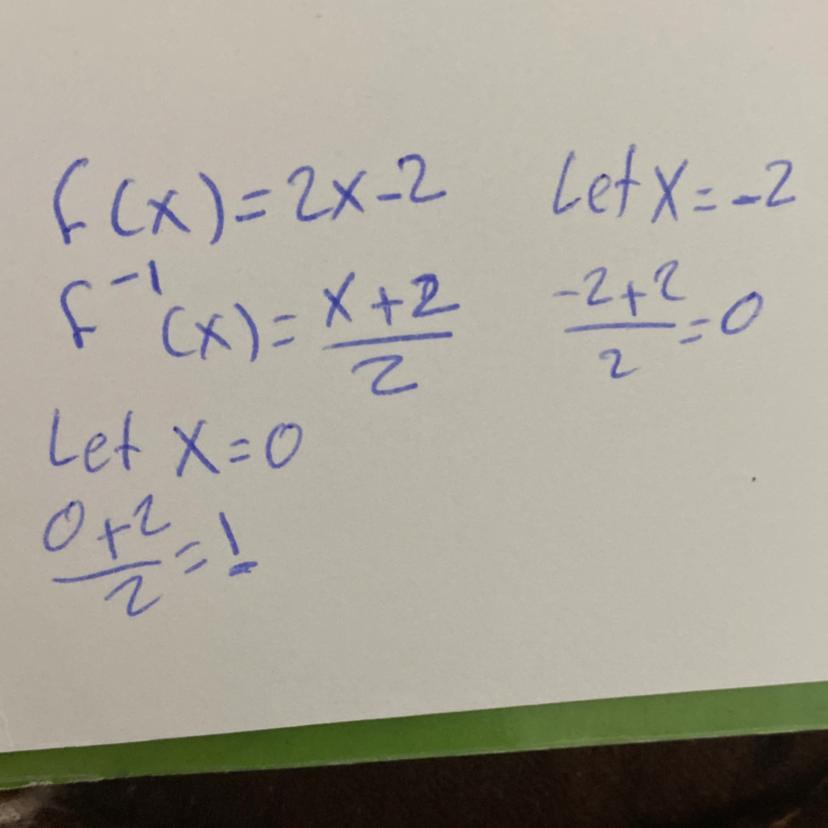 f(x)=2x-2
f⁻¹(x)=(x+2)/2
Let x=0
(0+2)/2=1
Let x=-2
(-2+2)/2=0